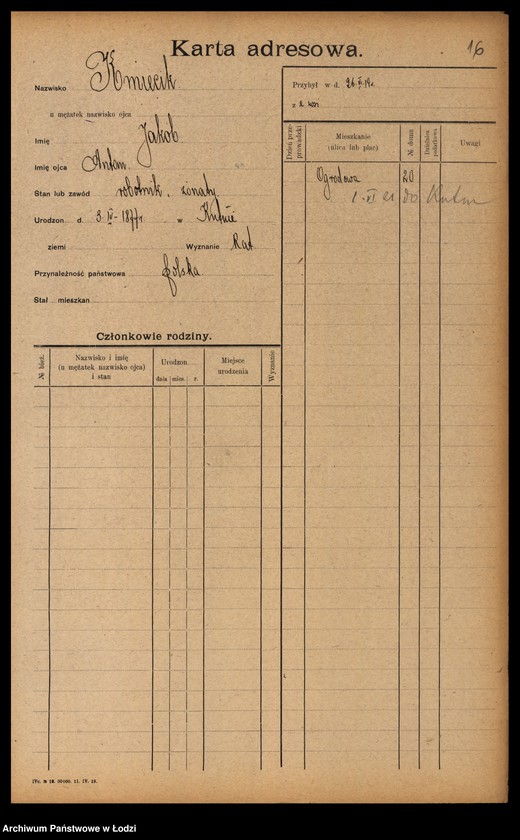 Karta adresowa.
16
Nazwisko Kmiecik
u mężatek nazwisko ojca
Imię Jakob
Imię ojca Anton.
Stan lub zawód robotnik. żonaty
Urodzon d. 3. IV - 1877r. w Kutnie
ziemi Wyznanie Kat.
Przynależność państwowa polska
Stał. mieszkan
Przybył w d. 26.
z
Dzień przeprowadzki
Mieszkanie
(ulica lub plac)
№ domu
Uwagi
Ogrodowa 20
1. XI 21 do Kutna
Członkowie rodziny.
№ bież.
Nazwisko i imię
(u mężatek nazwisko ojca)
i stan
Urodzon
dnia mies. r.
Miejsce
urodzenia
Wyznanie
Archiwum Państwowe w Łodzi